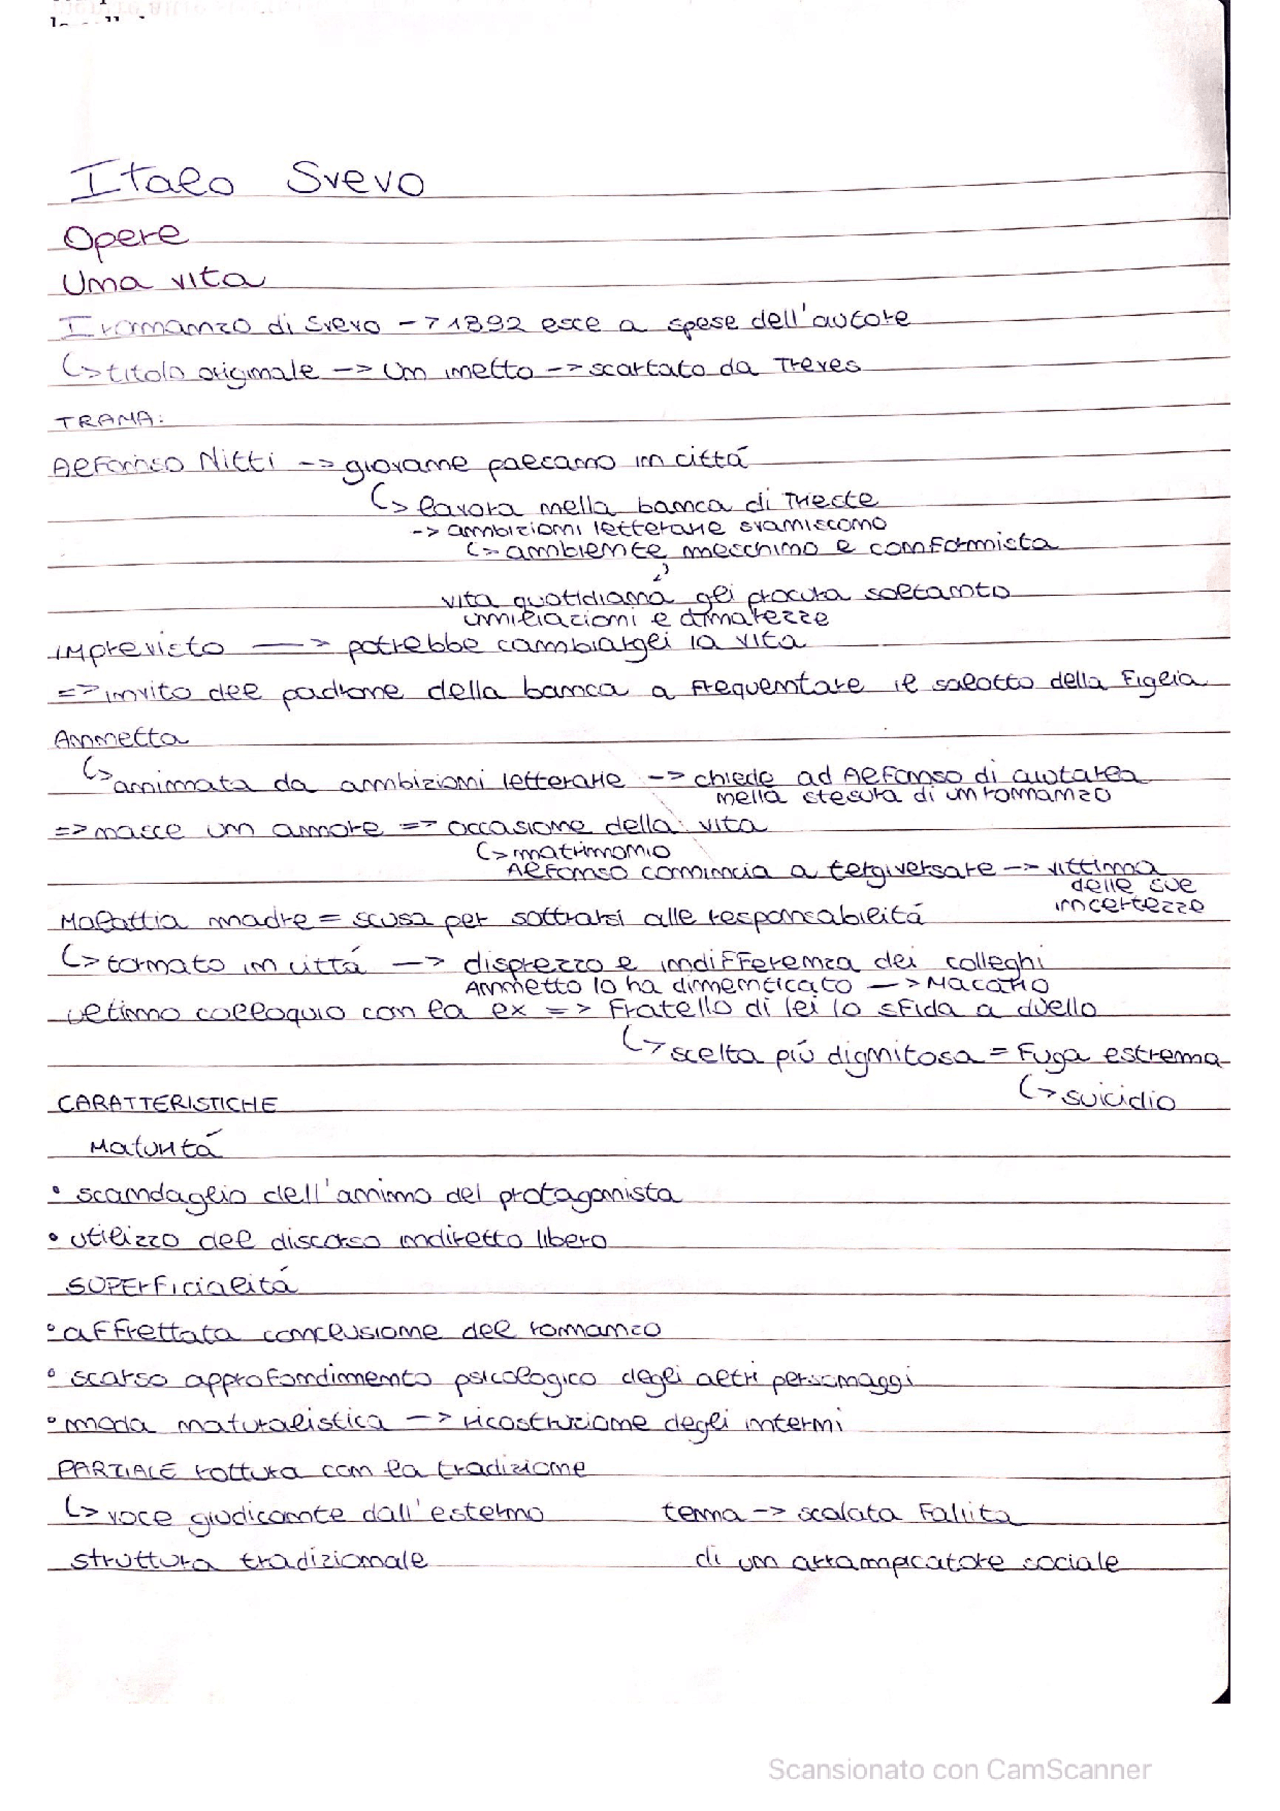 Italo Svevo
Opere
Una vita
I romanzo di Svevo -> 1892 esce a spese dell'autore
↳ titolo originale -> Un inetto -> scartato da Treves
TRAMA:
Alfonso Nitti -> giovane paesano in cittá
↳ lavora nella banca di Trieste
-> ambizioni letterarie svaniscono
↳ ambiente meschino e conformista
vita quotidiana gli procura soltanto
umiliazioni e amarezze
imprevisto —> potrebbe cambiargli la vita
=> invito del padrone della banca a frequentare il salotto della figlia
Annetta
↳ animata da ambizioni letterarie -> chiede ad Alfonso di aiutarla
nella stesura di un romanzo
=> nasce un amore => occasione della vita
↳ matrimonio
Alfonso comincia a tergiversare -> vittima
delle sue
incertezze
Malattia madre = scusa per sottrarsi alle responsabilitá
↳ tornato in cittá —> disprezzo e indifferenza dei colleghi
Annetta lo ha dimenticato —> Macario
ultimo colloquio con la ex => fratello di lei lo sfida a duello
↳ scelta piú dignitosa = fuga estrema
↳ suicidio
CARATTERISTICHE
Maturitá
• scandaglio dell'animo del protagonista
• utilizzo del discorso indiretto libero
SUPERFicialitá
• affrettata conclusione del romanzo
• scarso approfondimento psicologico degli altri personaggi
• moda naturalistica —> ricostruzione degli interni
PARZIALE rottura con la tradizione
↳ voce giudicante dall'esterno tema -> scalata fallita
struttura tradizionale di un arrampicatore sociale
Scansionato con CamScanner